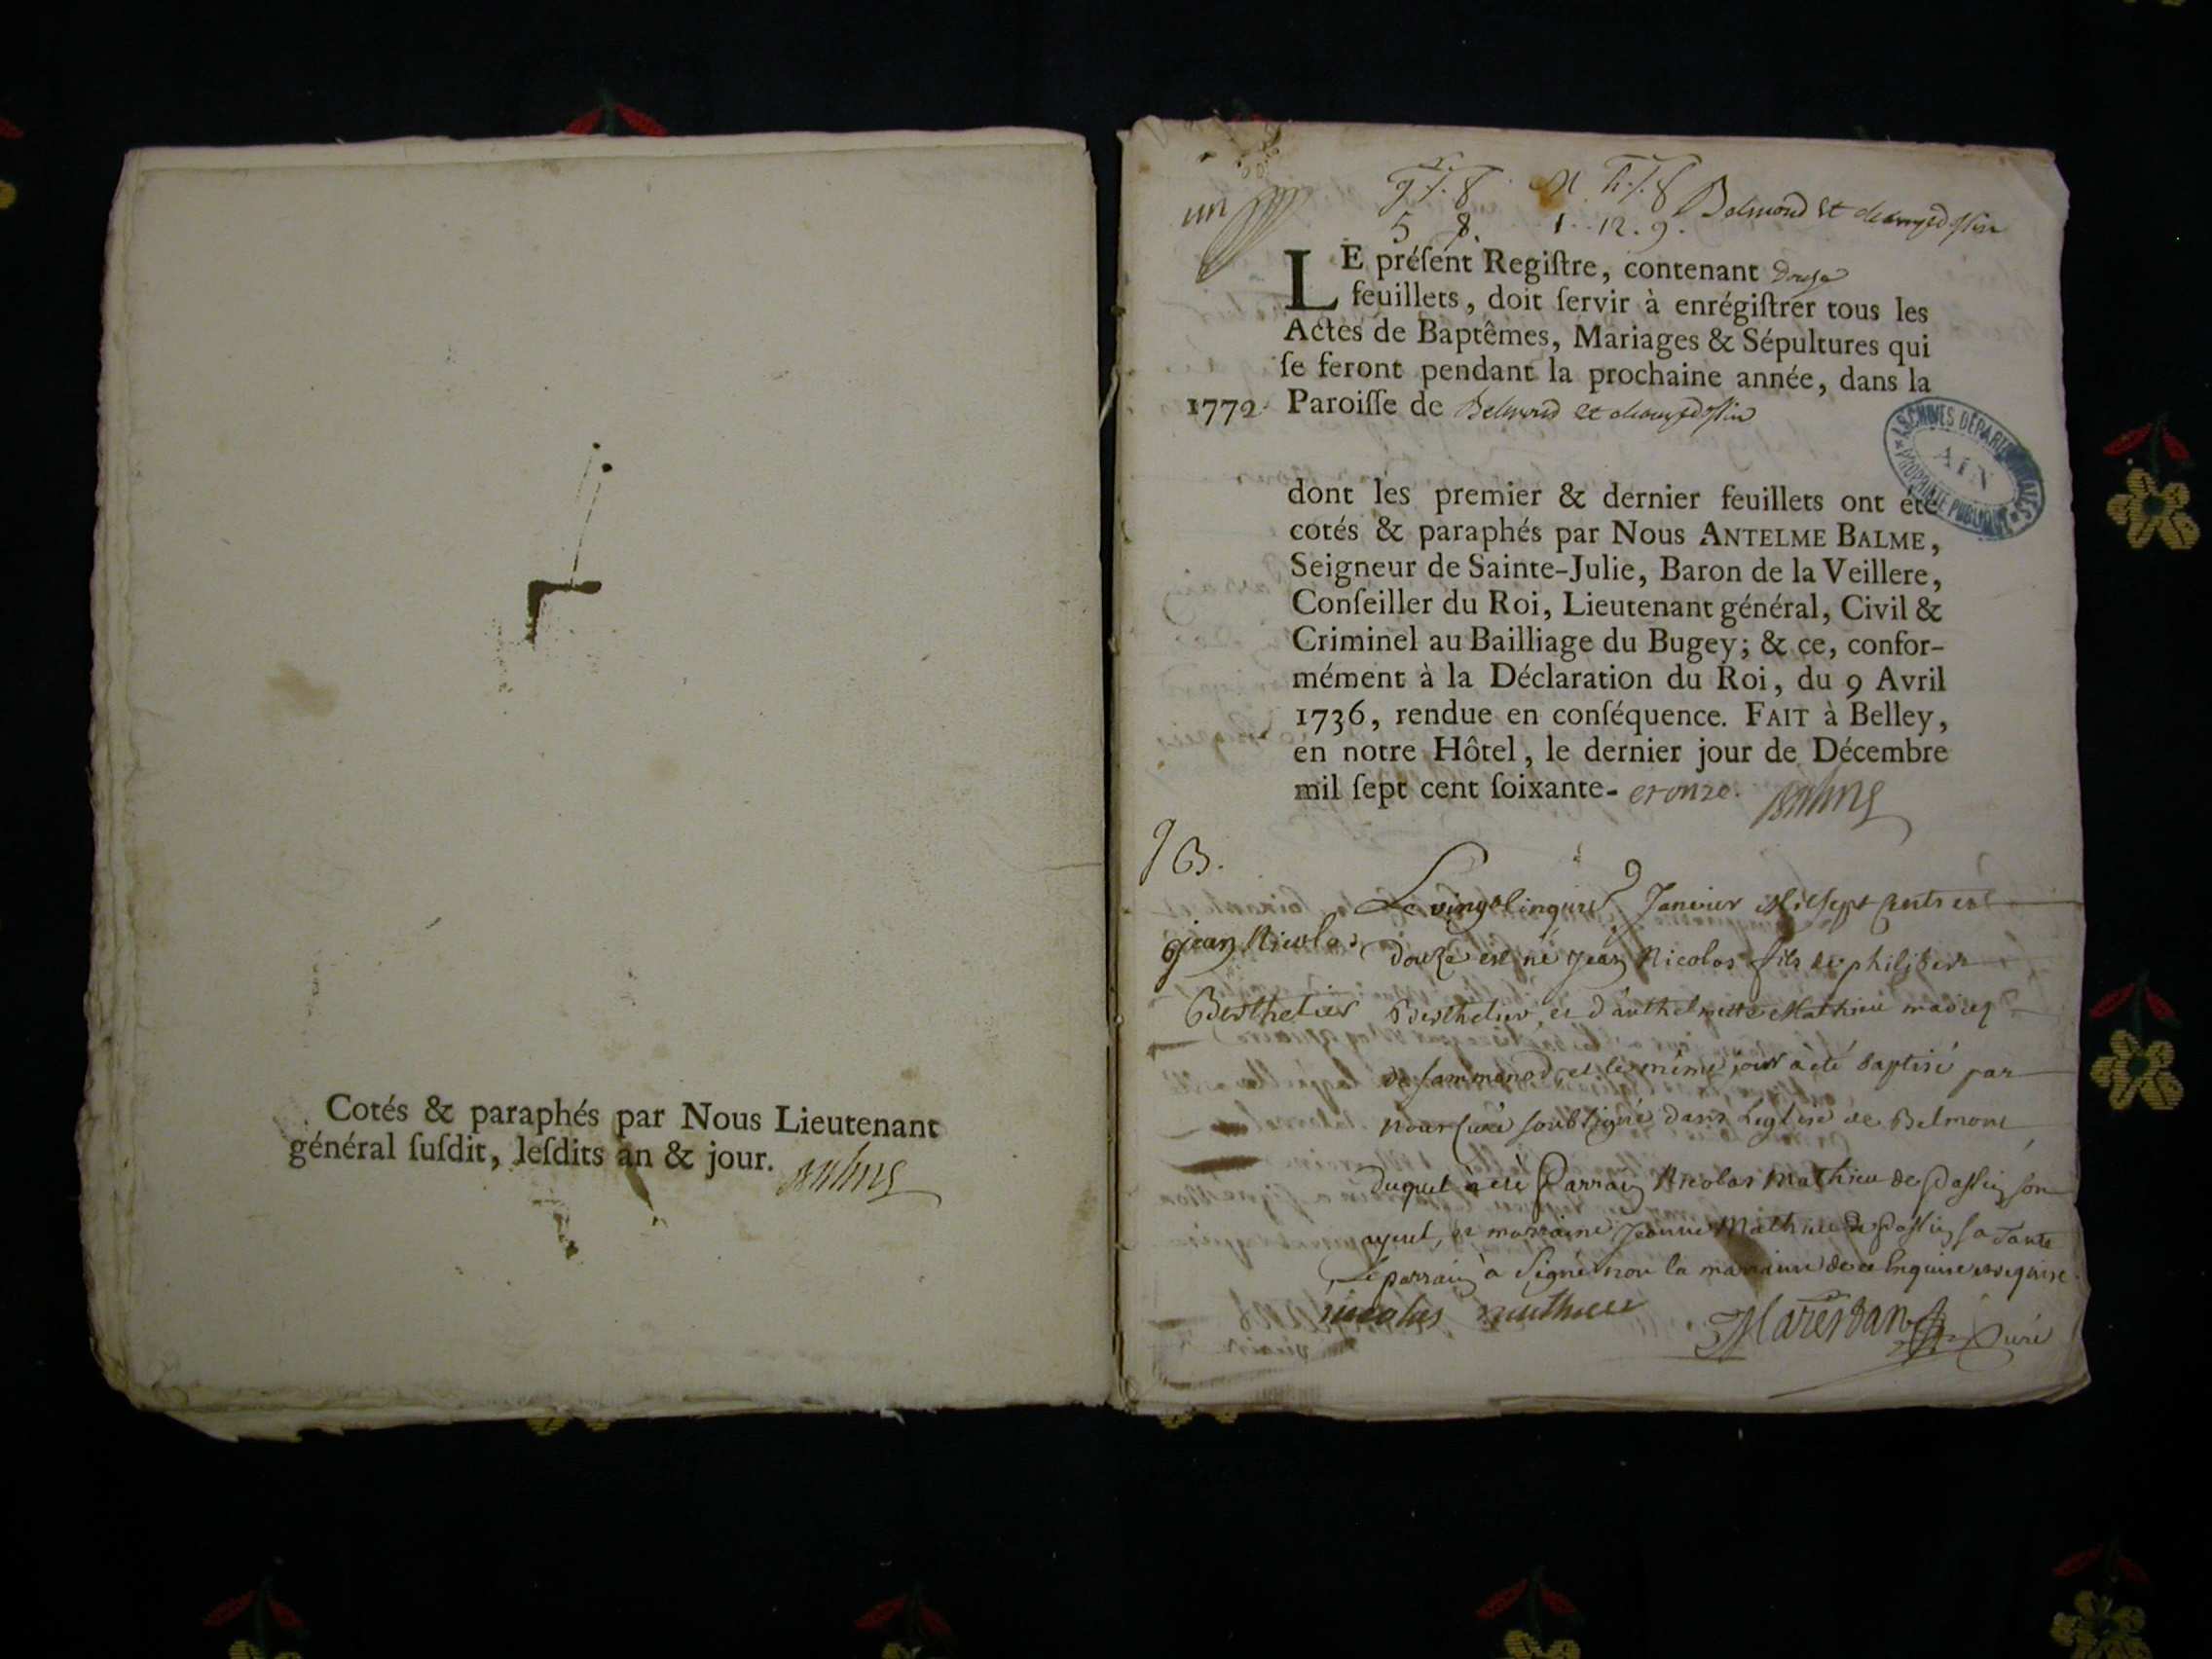 Cotés & paraphés par Nous Lieutenant
général ſuſdit, leſdits an & jour.
un
5 8. 1. 12. 9.
Belmond et
LE préſent Regiſtre, contenant douze
feuillets, doit ſervir à enrégiſtrer tous les
Actes de Baptêmes, Mariages & Sépultures qui
ſe feront pendant la prochaine année, dans la
1772 Paroiſſe de Belmond et
ARCHIVES DÉPARTEMENTALES
AIN
PROPRIÉTÉ PUBLIQUE
dont les premier & dernier feuillets ont été
cotés & paraphés par Nous ANTELME BALME,
Seigneur de Sainte-Julie, Baron de la Veillere,
Conſeiller du Roi, Lieutenant général, Civil &
Criminel au Bailliage du Bugey; & ce, confor-
mément à la Déclaration du Roi, du 9 Avril
1736, rendue en conſéquence. FAIT à Belley,
en notre Hôtel, le dernier jour de Décembre
mil ſept cent ſoixante- et onze. Balme
B.
Jean Nicolas
Berthelier
Le Janvier Mil sept cents
douze est né Jean Nicolas fils de philibert
Berthelier et d'anthelmette Mathieu
de Sammonod, et le même jour a été baptisé par
nous Curé soubsigné dans Leglise de Belmont
duquel à été Parrain Nicolas Mathieu de Passin son
ayeul, et marraine Jeanne Mathieu de Passin sa Tante
Le parrain à signé non la marraine de ce Enquise
nicolas mathieu
Curé